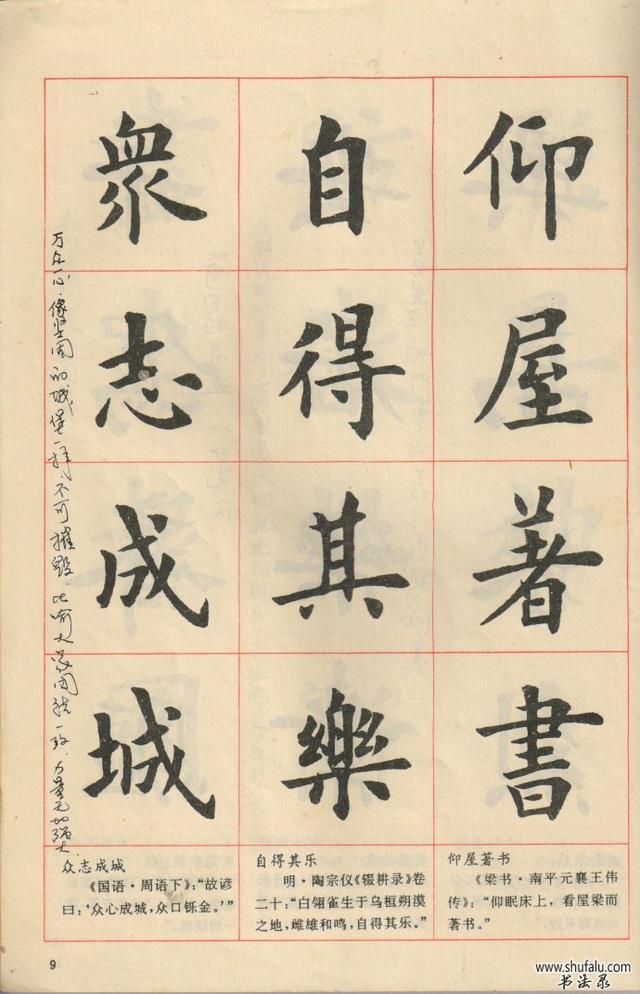 仰屋著書
自得其樂
衆志成城
万众一心,像坚固的城堡一样,不可摧毁.比喻大家团结一致,力量无比强大
仰屋著书
《梁书·南平元襄王伟
传》:“仰眠床上,看屋梁而
著书。”
自得其乐
明·陶宗仪《辍耕录》卷
二十:“白翎雀生于乌桓朔漠
之地,雌雄和鸣,自得其乐。”
众志成城
《国语·周语下》:“故谚
曰:‘众心成城,众口铄金。’”
9
www.shufalu.com
书法录